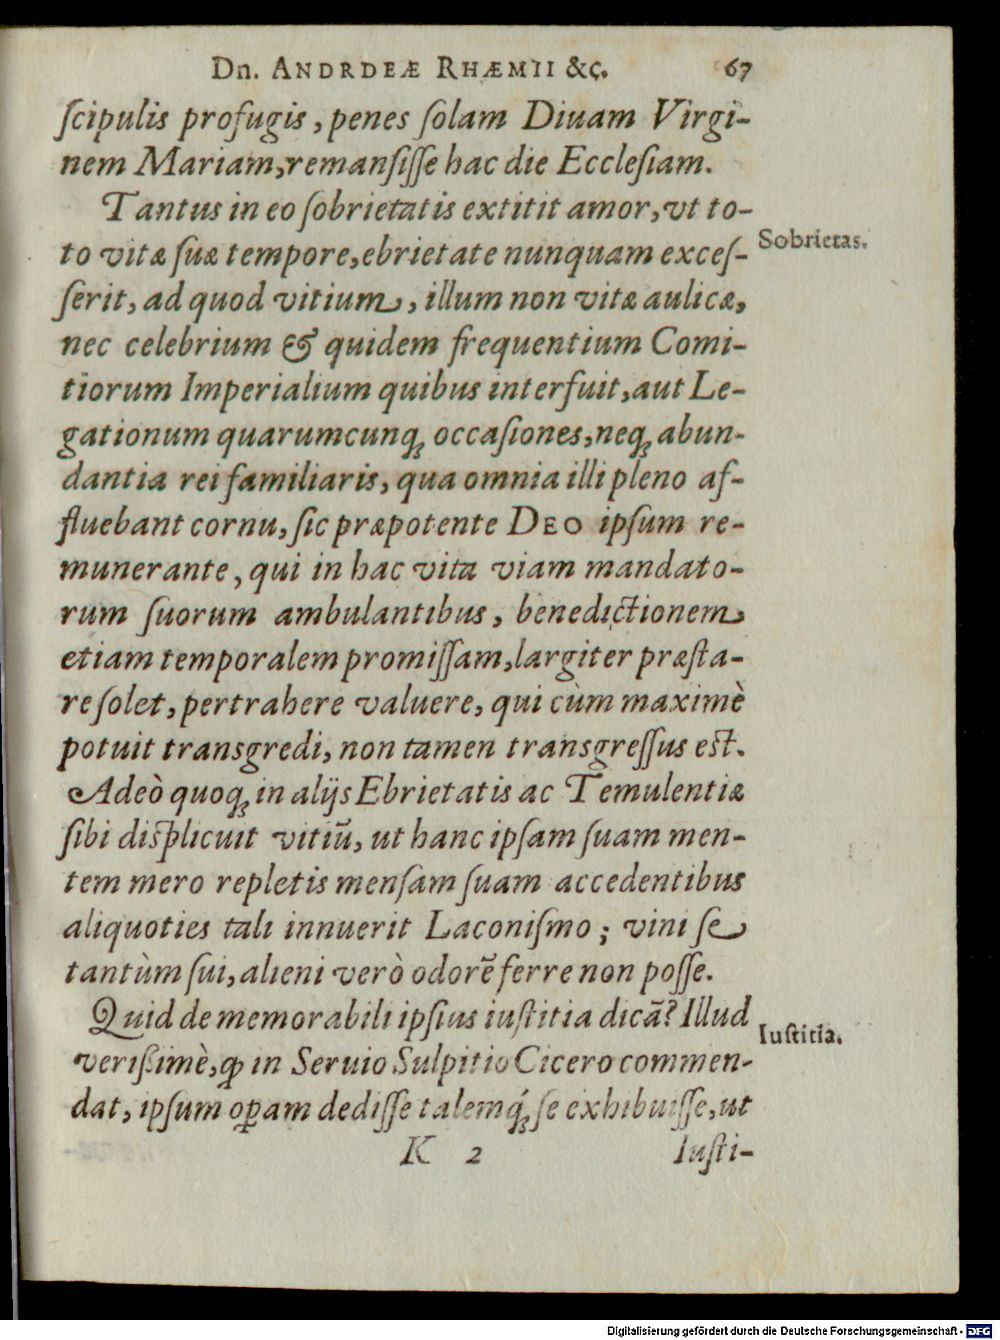 Dn. ANDRDEÆ RHÆMII &c. 67
ſcipulis profugis, penes ſolam Diuam Virgi-
nem Mariam, remanſiſſe hac die Eccleſiam.
Tantus in eo ſobrietatis extitit amor, vt to-
to vitæ ſuæ tempore, ebrietate nunquam exceſ-
Sobrietas.
ſerit, ad quod vitium, illum non vitæ aulicæ,
nec celebrium & quidem frequentium Comi-
tiorum Imperialium quibus interfuit, aut Le-
gationum quarumcunq; occaſiones, neq; abun-
dantia rei familiaris, qua omnia illi pleno af-
fluebant cornu, ſic præpotente DEO ipſum re-
munerante, qui in hac vita viam mandato-
rum ſuorum ambulantibus, benedictionem
etiam temporalem promiſſam, largiter præſta-
re ſolet, pertrahere valuere, qui cùm maximè
potuit transgredi, non tamen transgreſſus est.
Adeò quoq; in alijs Ebrietatis ac Temulentiæ
ſibi diſplicuit vitiũ, ut hanc ipſam ſuam men-
tem mero repletis menſam ſuam accedentibus
aliquoties tali innuerit Laconiſmo; vini ſe
tantùm ſui, alieni verò odorẽ ferre non poſſe.
Quid de memorabili ipſius iuſtitia dicã? Illud
Iuſtitia.
verißimè, ꝙ in Seruio Sulpitio Cicero commen-
dat, ipſum oꝑam dediſſe talemq́; ſe exhibuiſſe, ut
K 2 Iuſti-
Digitalisierung gefördert durch die Deutsche Forschungsgemeinschaft - DFG